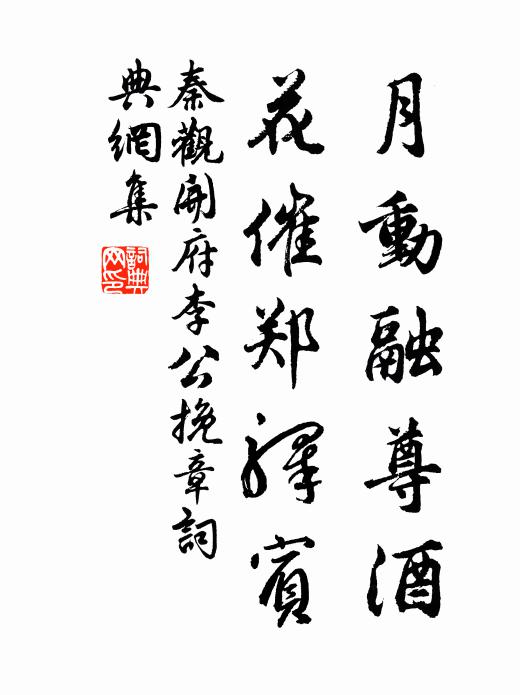 月動融尊酒
花催郑驿賓
秦觀開府李公挽章詞
典網集
詞典
网印